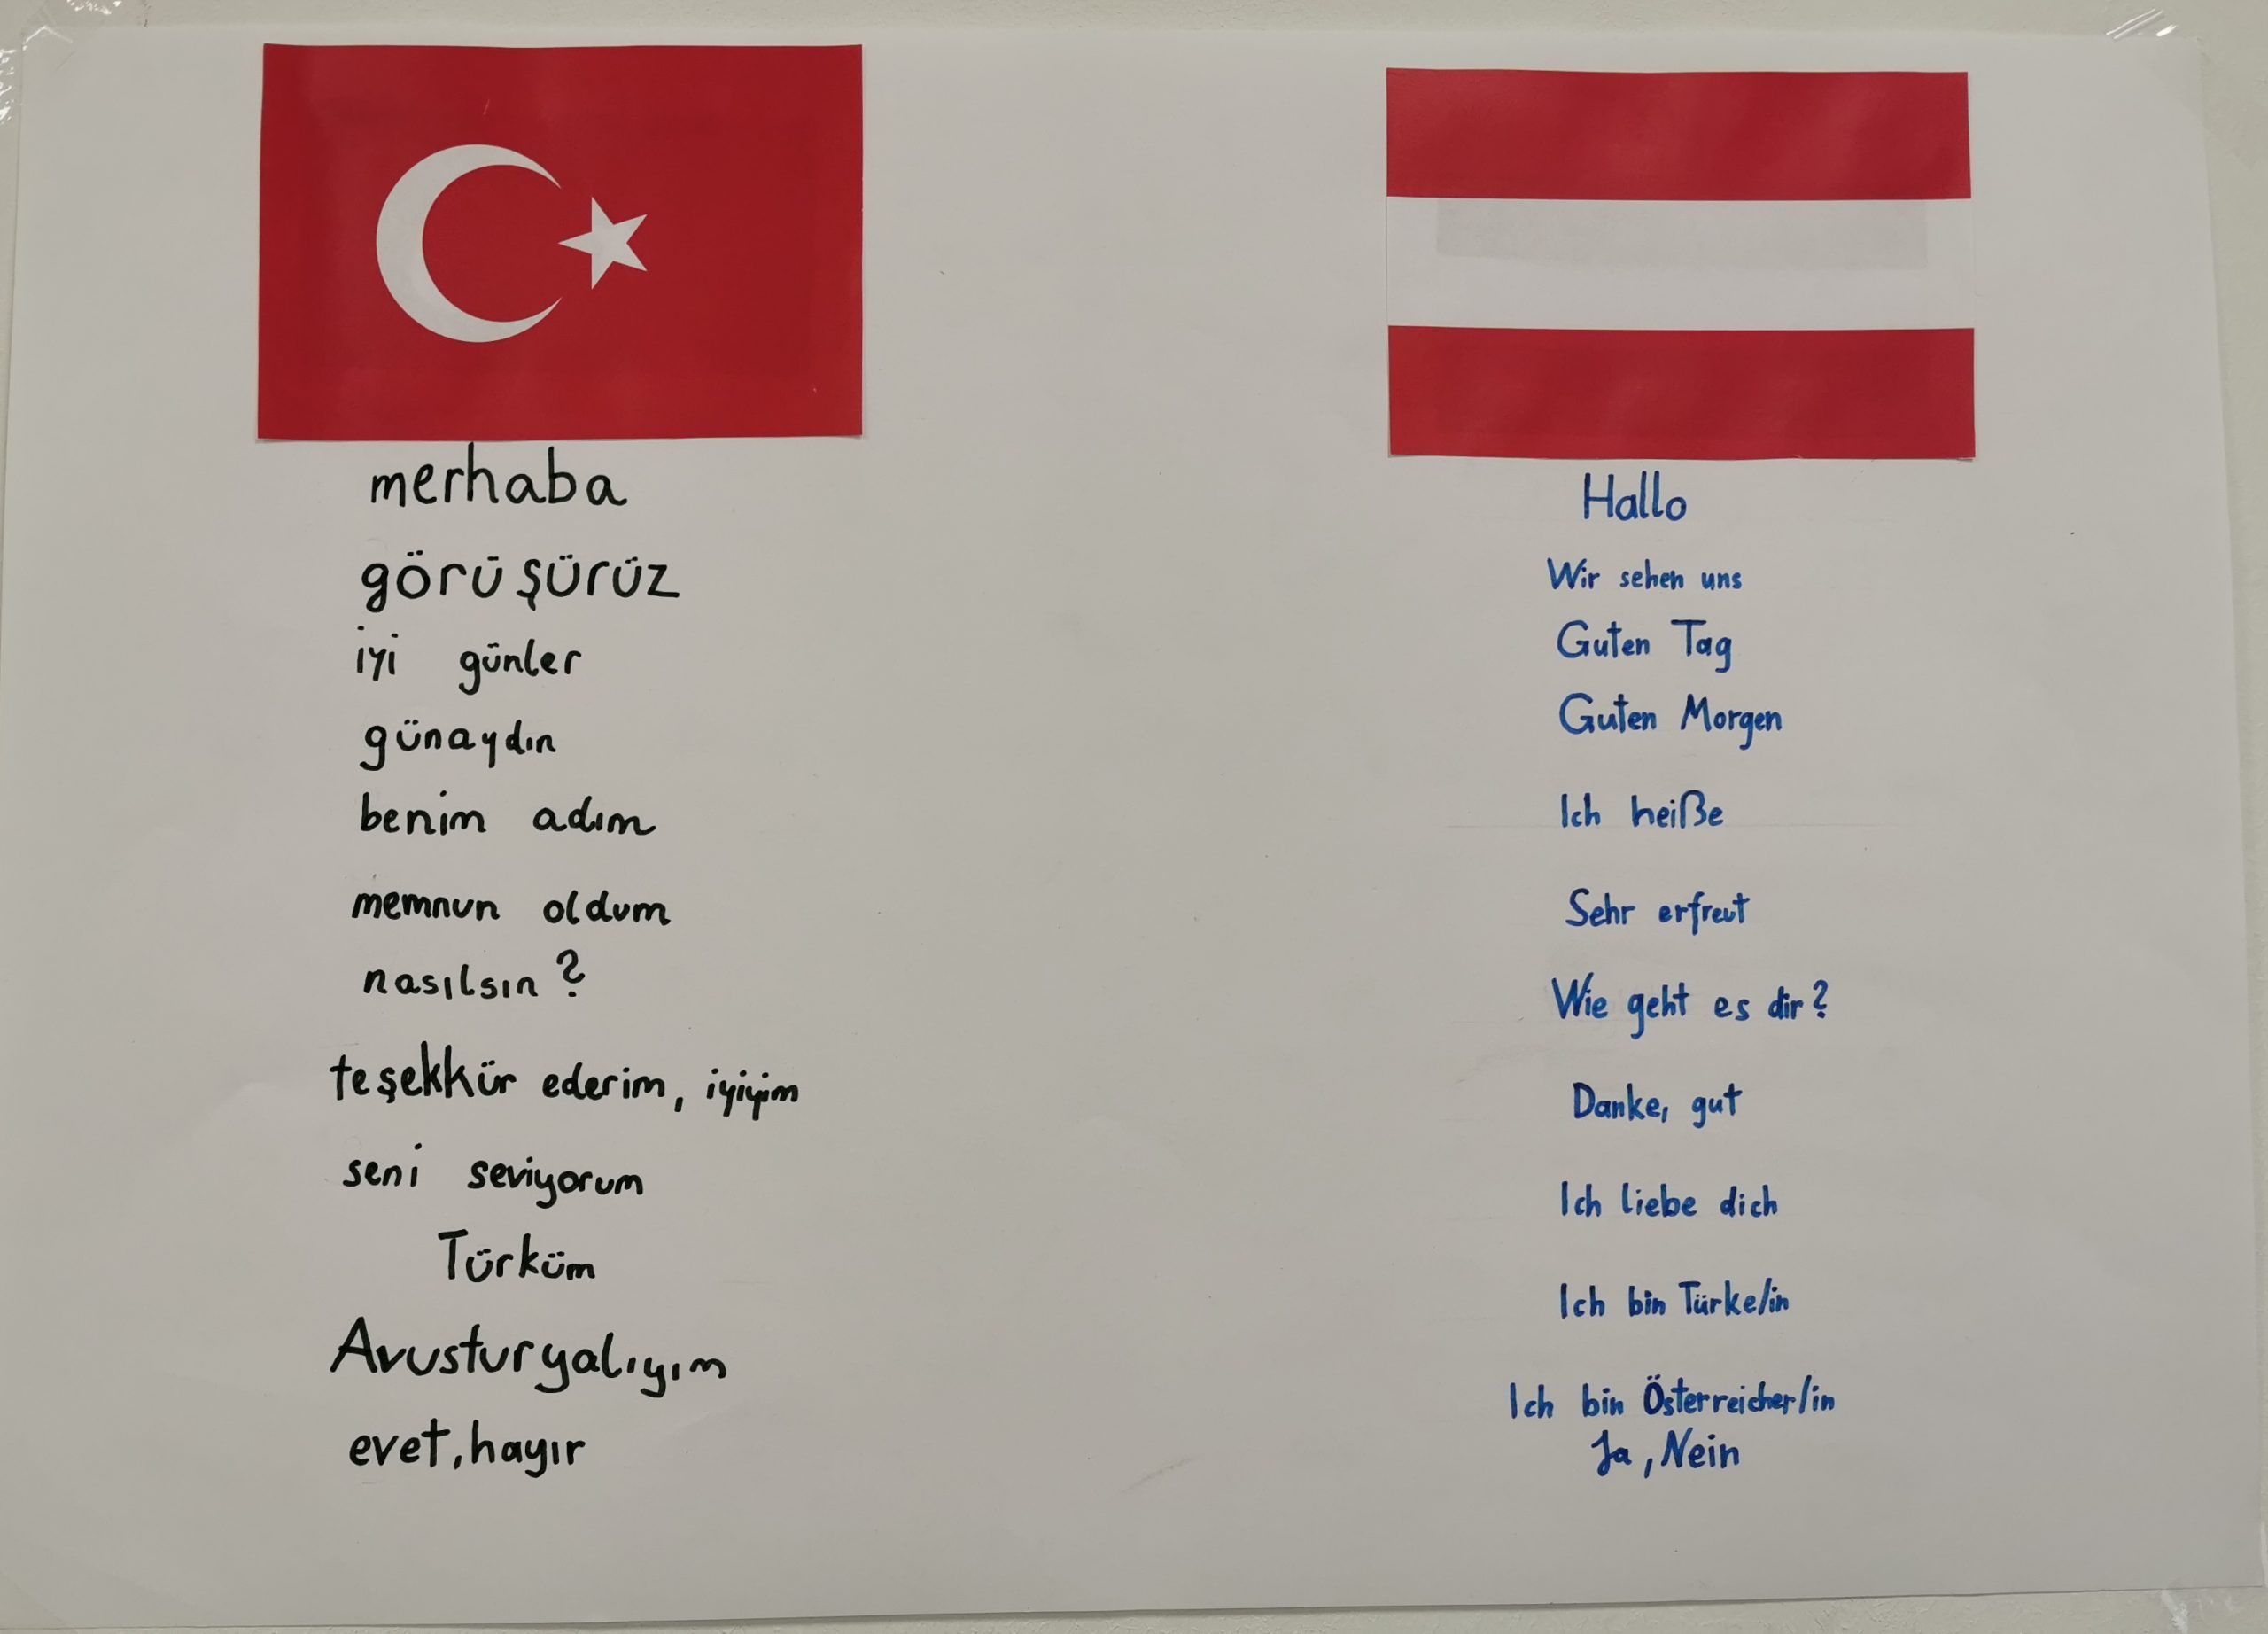 merhaba
görüşürüz
iyi günler
günaydın
benim adım
memnun oldum
nasılsın?
teşekkür ederim, iyiyim
seni seviyorum
Türküm
Avusturyalıyım
evet, hayır
Hallo
Wir sehen uns
Guten Tag
Guten Morgen
Ich heiße
Sehr erfreut
Wie geht es dir?
Danke, gut
Ich liebe dich
Ich bin Türke/in
Ich bin Österreicher/in
Ja, Nein